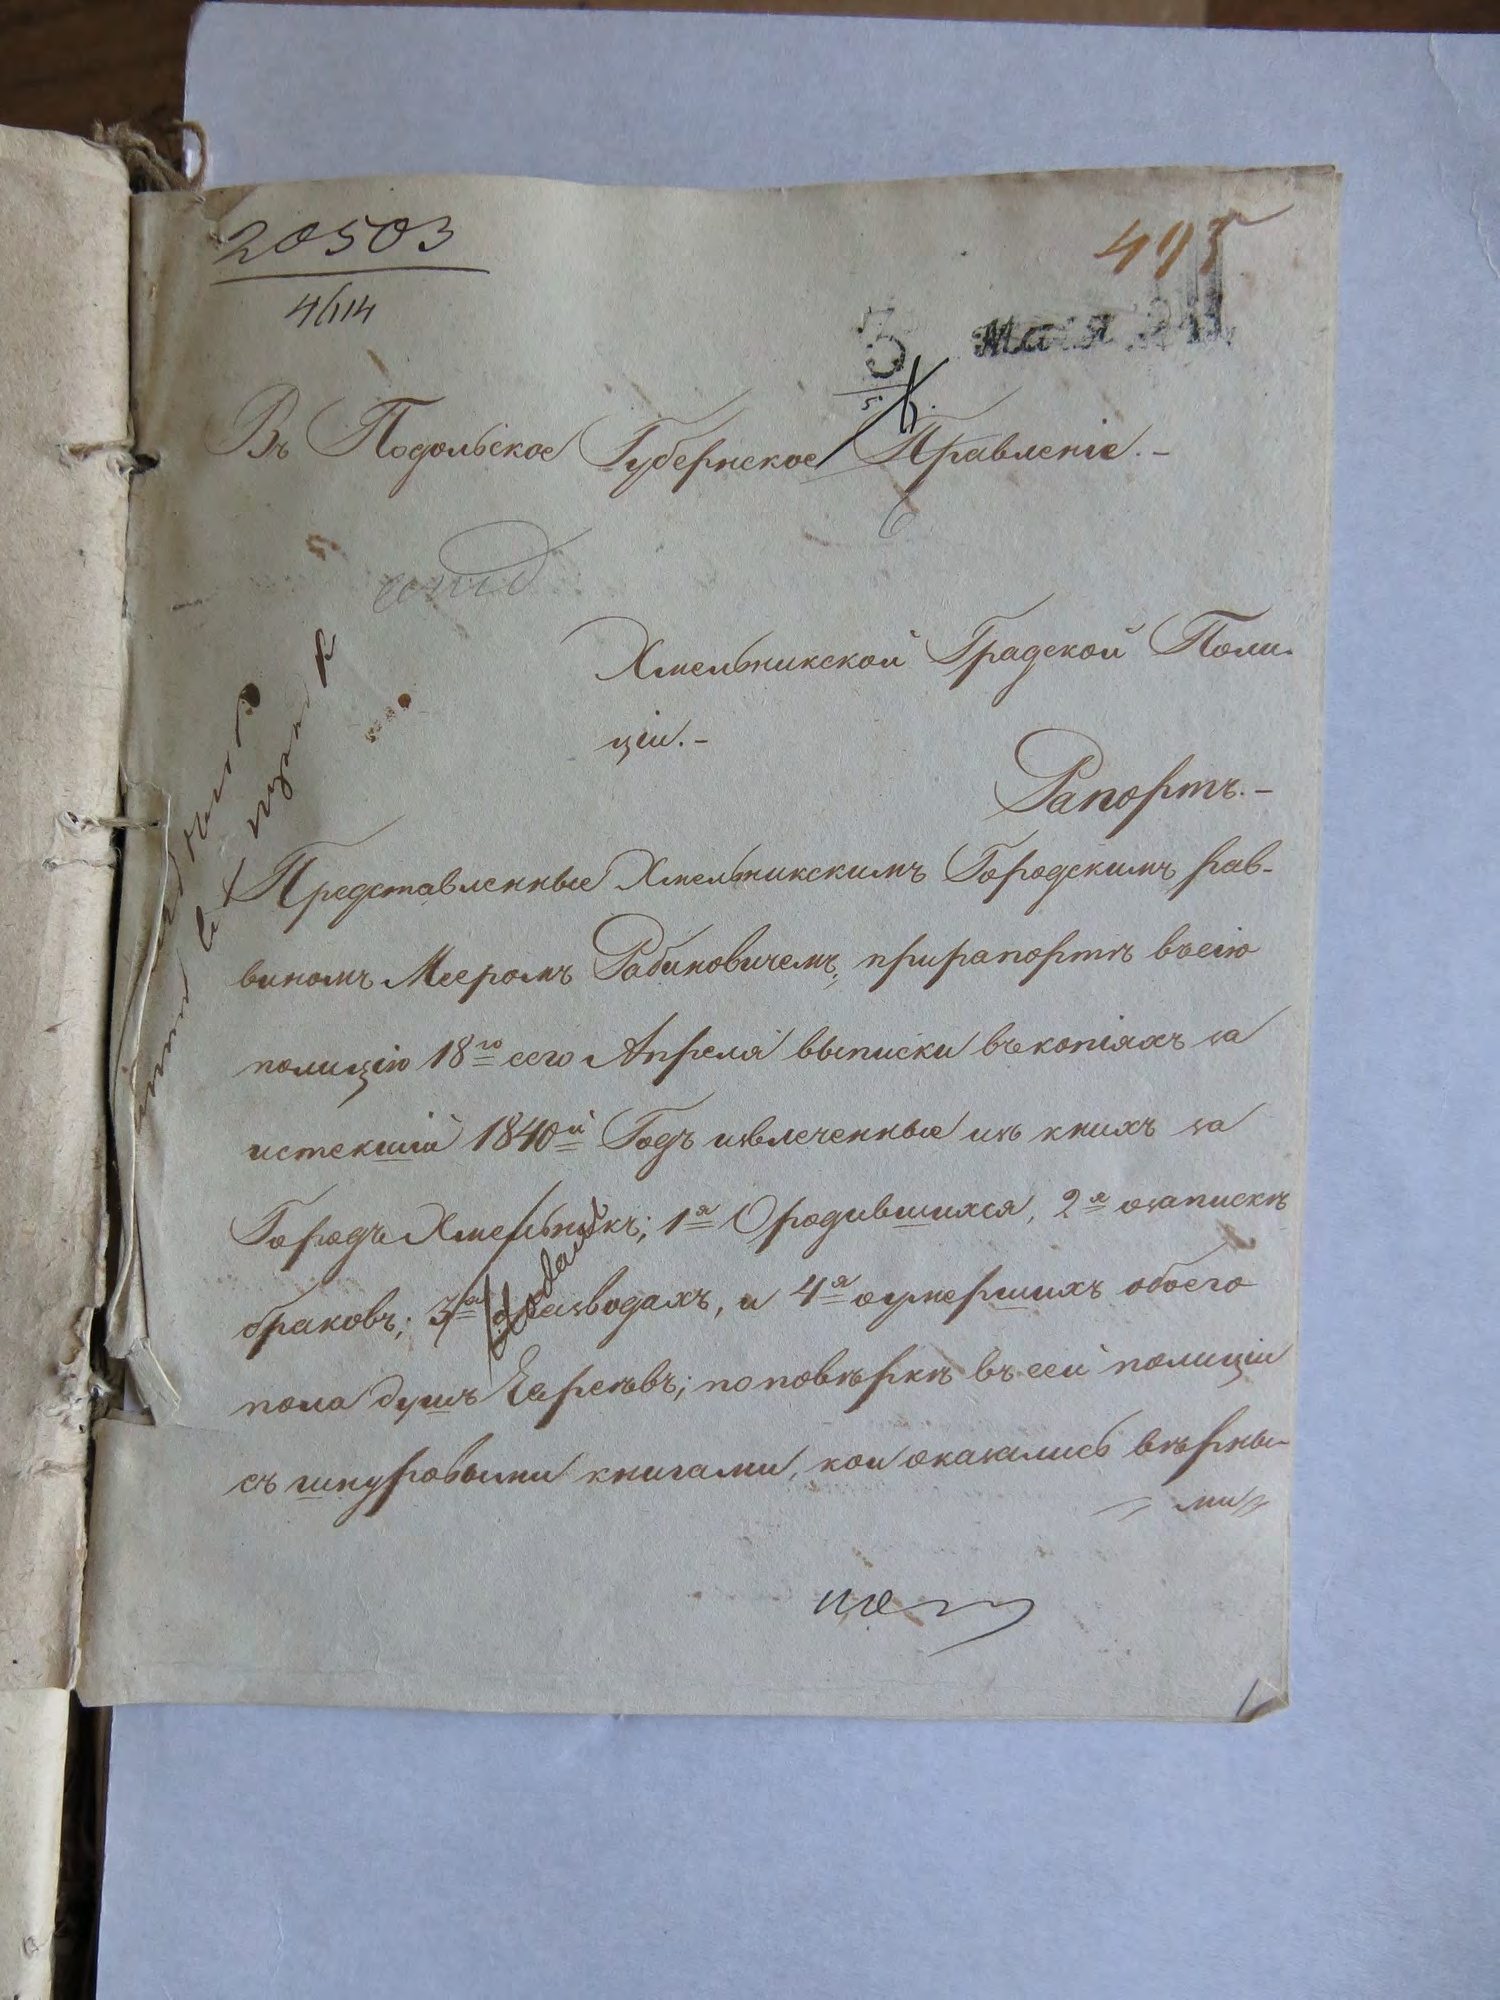 20503
4614
495
3 Мая 1841
Въ Подольское Губернское Правленіе.-
Хмельникской Градской Поли-
ціи.-
Рапортъ.-
Представленные Хмельникскимъ Городскимъ рав-
виномъ Мееромъ Рабиновичемъ, прирапортѣ въсію
полицію 18го сего Апреля выписки въкопіяхъ за
истекшій 1840й Годъ извлеченные изъ книхъ за
Городъ Хмельникъ; 1я Ородившихся, 2я озапискѣ
браковъ; 3я оразводахъ, и 4я оумершихъ обоего
пола душъ Евреѣвъ; поповѣркѣ въ сей полиціи
съ шнуровыми книгами, кои оказались вѣрны-
ми